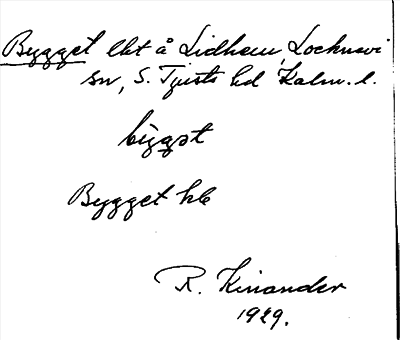 Bygget lht å Lidhem, Locknevi
sn, S. Tjusts hd Kalm. l.
bygǝt
Bygget hb
R. Kinander
1929.